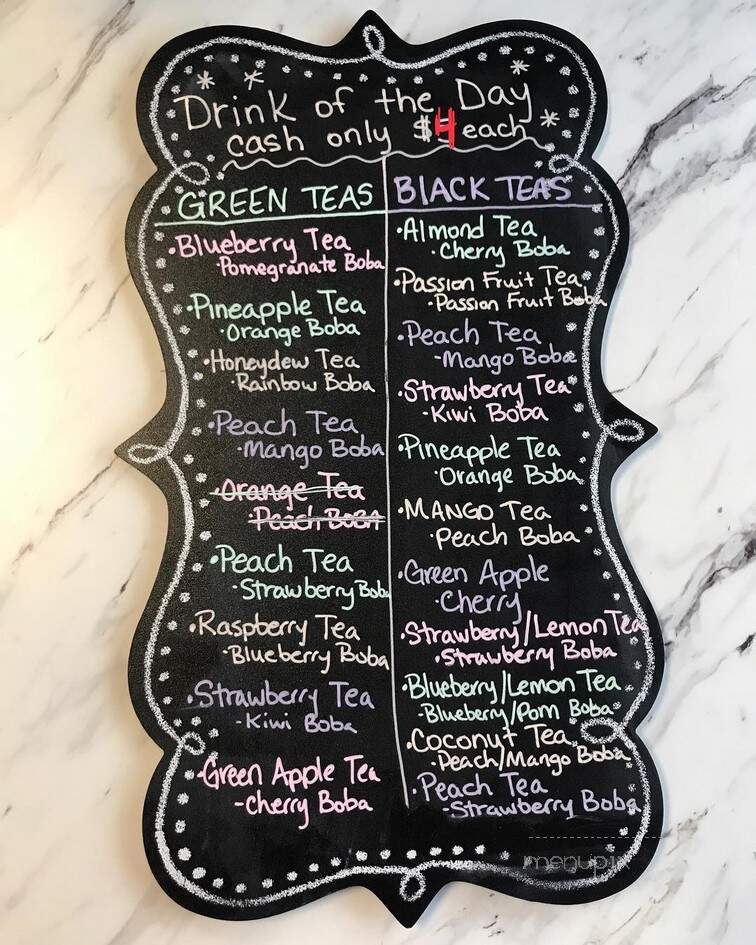 Drink of the Day
cash only $4 each
GREEN TEAS
•Blueberry Tea
•Pomegranate Boba
•Pineapple Tea
•Orange Boba
•Honeydew Tea
•Rainbow Boba
•Peach Tea
•Mango Boba
•Orange Tea
•Peach BOBA
•Peach Tea
•Strawberry Boba
•Raspberry Tea
•Blueberry Boba
•Strawberry Tea
-Kiwi Boba
•Green Apple Tea
-Cherry Boba
BlACK TEAS
•Almond Tea
•Cherry Boba
•Passion Fruit Tea
•Passion Fruit Boba
•Peach Tea
-Mango Boba
•Strawberry Tea
-Kiwi Boba
•Pineapple Tea
•Orange Boba
•MANGO Tea
•Peach Boba
•Green Apple
•Cherry
•Strawberry/Lemon Tea
•Strawberry Boba
•Blueberry/Lemon Tea
-Blueberry/Pom Boba
•Coconut Tea
•Peach/Mango Boba
•Peach Tea
-Strawberry Boba
menupix